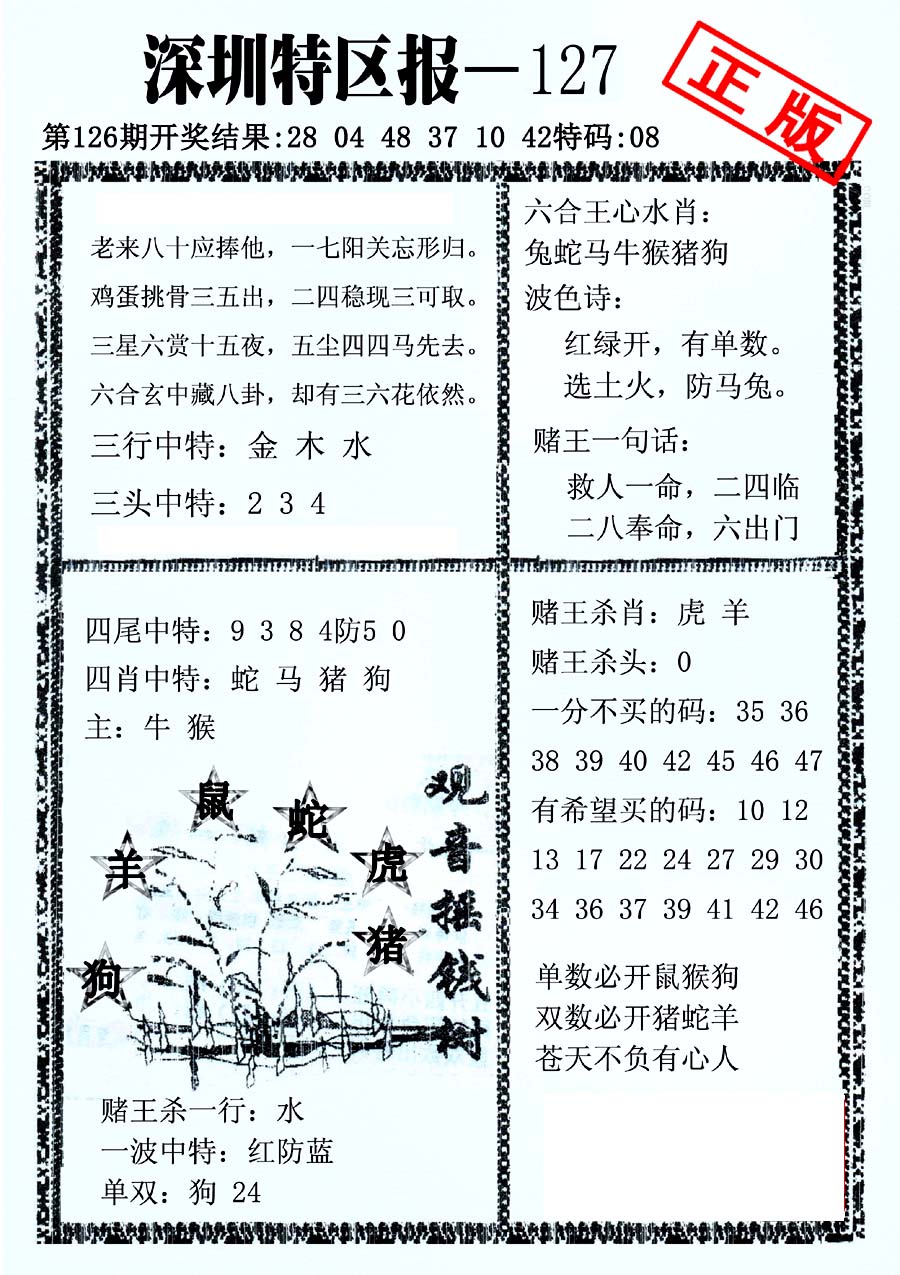 深圳特区报—127
正版
第126期开奖结果:28 04 48 37 10 42特码:08
老来八十应捧他，一七阳关忘形归。
鸡蛋挑骨三五出，二四稳现三可取。
三星六赏十五夜，五尘四四马先去。
六合玄中藏八卦，却有三六花依然。
三行中特：金 木 水
三头中特：2 3 4
六合王心水肖：
兔蛇马牛猴猪狗
波色诗：
红绿开，有单数。
选土火，防马兔。
赌王一句话：
救人一命，二四临
二八奉命，六出门
四尾中特：9 3 8 4防5 0
四肖中特：蛇 马 猪 狗
主：牛 猴
鼠
蛇
羊
虎
猪
狗
观音摇钱树
赌王杀一行：水
一波中特：红防蓝
单双：狗 24
赌王杀肖：虎 羊
赌王杀头：0
一分不买的码：35 36
38 39 40 42 45 46 47
有希望买的码：10 12
13 17 22 24 27 29 30
34 36 37 39 41 42 46
单数必开鼠猴狗
双数必开猪蛇羊
苍天不负有心人